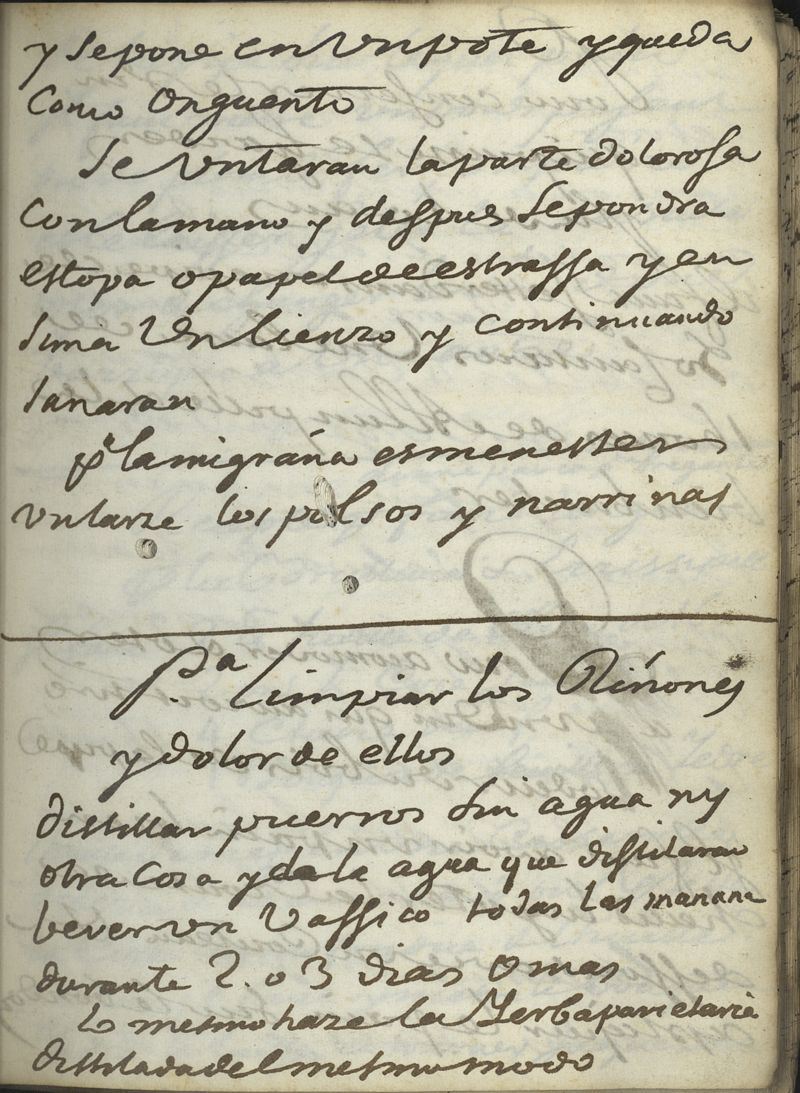 y se pone en un pote y queda
Como Onguento
Se Untaran la parte dolorosa
Con la mano y despues se pondra
estopa o papel de estrassa y en
sima Un lienzo y continuando
sanaran
pª la migraña es menester
untarse los pulsos y narrinas
Pª limpiar los Riñones
y dolor de ellos
distillar puerros sin agua ny
otra Cosa y de la agua que distilaran
bever un Vassico todas las manana
durante 2. o 3 dias o mas
lo mesmo haze la Yerba parietaria
distilada del mesmo modo